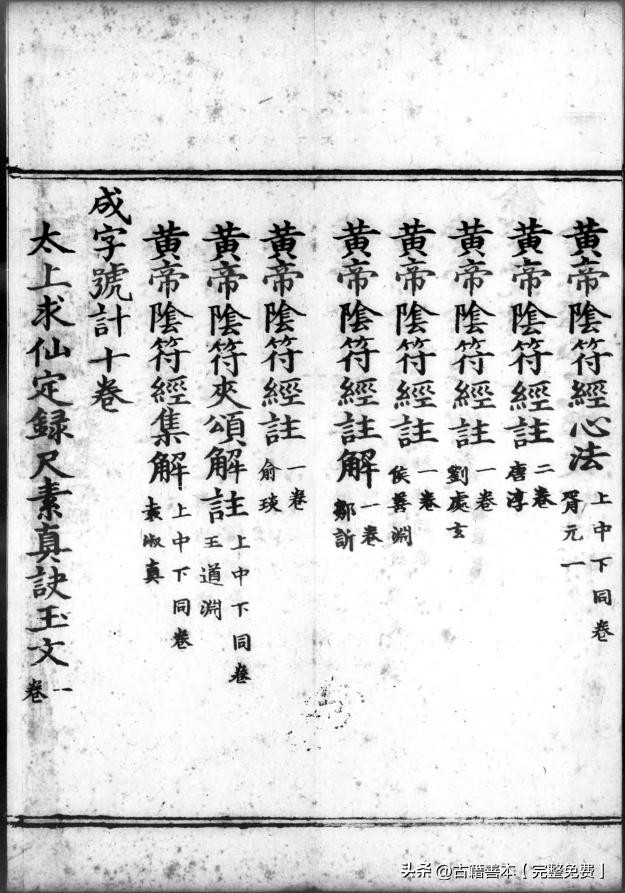 黄帝陰符經心法 上中下同卷 胥元一
黄帝陰符經註 二卷 唐淳
黄帝陰符經註 一卷 劉處玄
黄帝陰符經註 一卷 侯善淵
黄帝陰符經註解 一卷 鄒訢
黄帝陰符經註 一卷 俞琰
黄帝陰符夾頌解註 上中下同卷 王道淵
黄帝陰符經集解 上中下同卷 袁淑真
成字號計十卷
太上求仙定録尺素真訣玉文 一卷
头条 @古籍善本【完整免费】